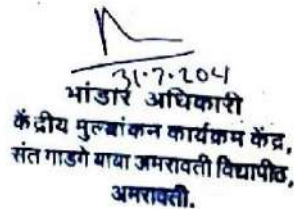 31.7.204
भांडार अधिकारी
केंद्रीय मुल्यांकन कार्यक्रम केंद्र,
संत गाडगे बाबा अमरावती विद्यापीठ,
अमरावती.